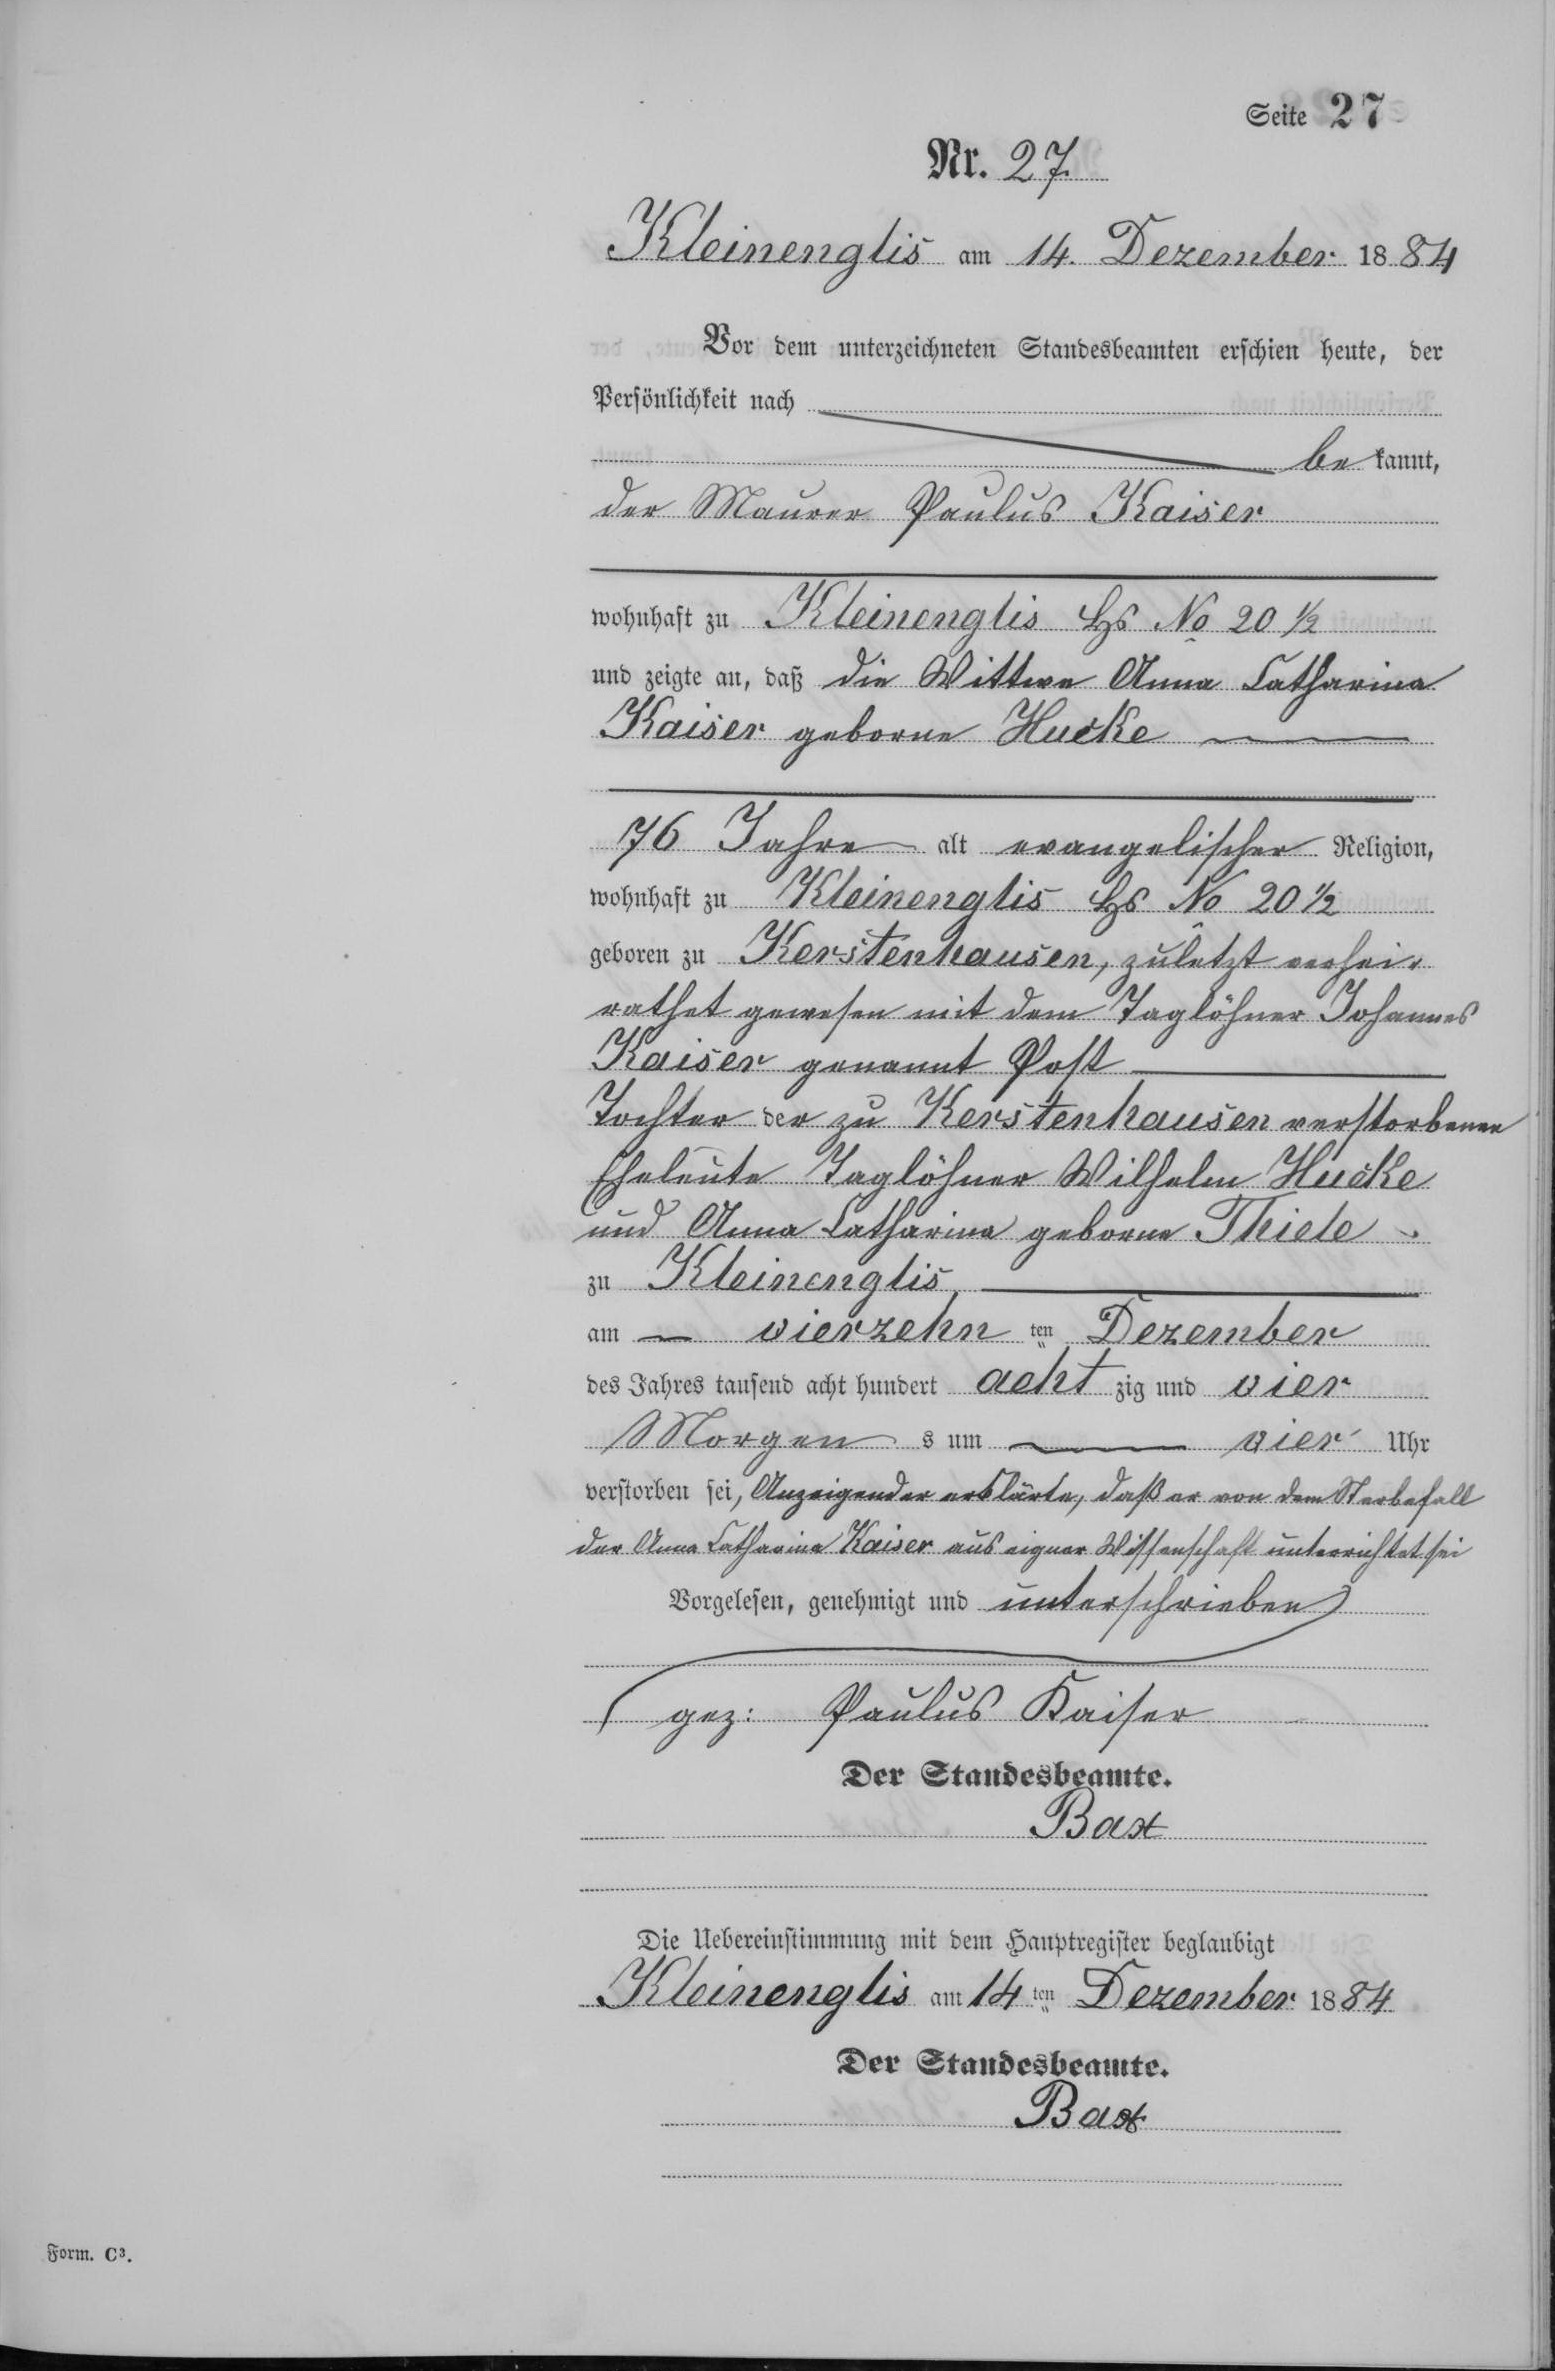 Seite 27
Nr. 27.
Kleinenglis am 14. Dezember 1884
Vor dem unterzeichneten Standesbeamten erschien heute, der
Persönlichkeit nach
be kannt,
der Maurer Paulus Kaiser
wohnhaft zu Kleinenglis Hs No 20 1/2
und zeigte an, daß die Wittwe Anna Catharina
Kaiser geborne Hucke
76 Jahre alt evangelischer Religion,
wohnhaft zu Kleinenglis Hs No 20 1/2
geboren zu Kerstenhausen, zuletzt verhei-
rathet gewesen mit dem Taglöhner Johannes
Kaiser genannt Post
Tochter der zu Kerstenhausen verstorbenen
Eheleute Taglöhner Wilhelm Hucke
und Anna Catharina geborne Thiele
zu Kleinenglis
am vierzehn ten Dezember
des Jahres tausend acht hundert acht zig und vier
Morgen s um vier Uhr
verstorben sei, Anzeigender erklärte, daß er von dem Sterbefall
der Anna Catharina Kaiser aus eigner Wissenschaft unterrichtet sei
Vorgelesen, genehmigt und unterschrieben
gez: Paulus Kaiser
Der Standesbeamte.
Bax
Die Uebereinstimmung mit dem Hauptregister beglaubigt
Kleinenglis am 14 ten Dezember 1884
Der Standesbeamte.
Bax
Form. C³.